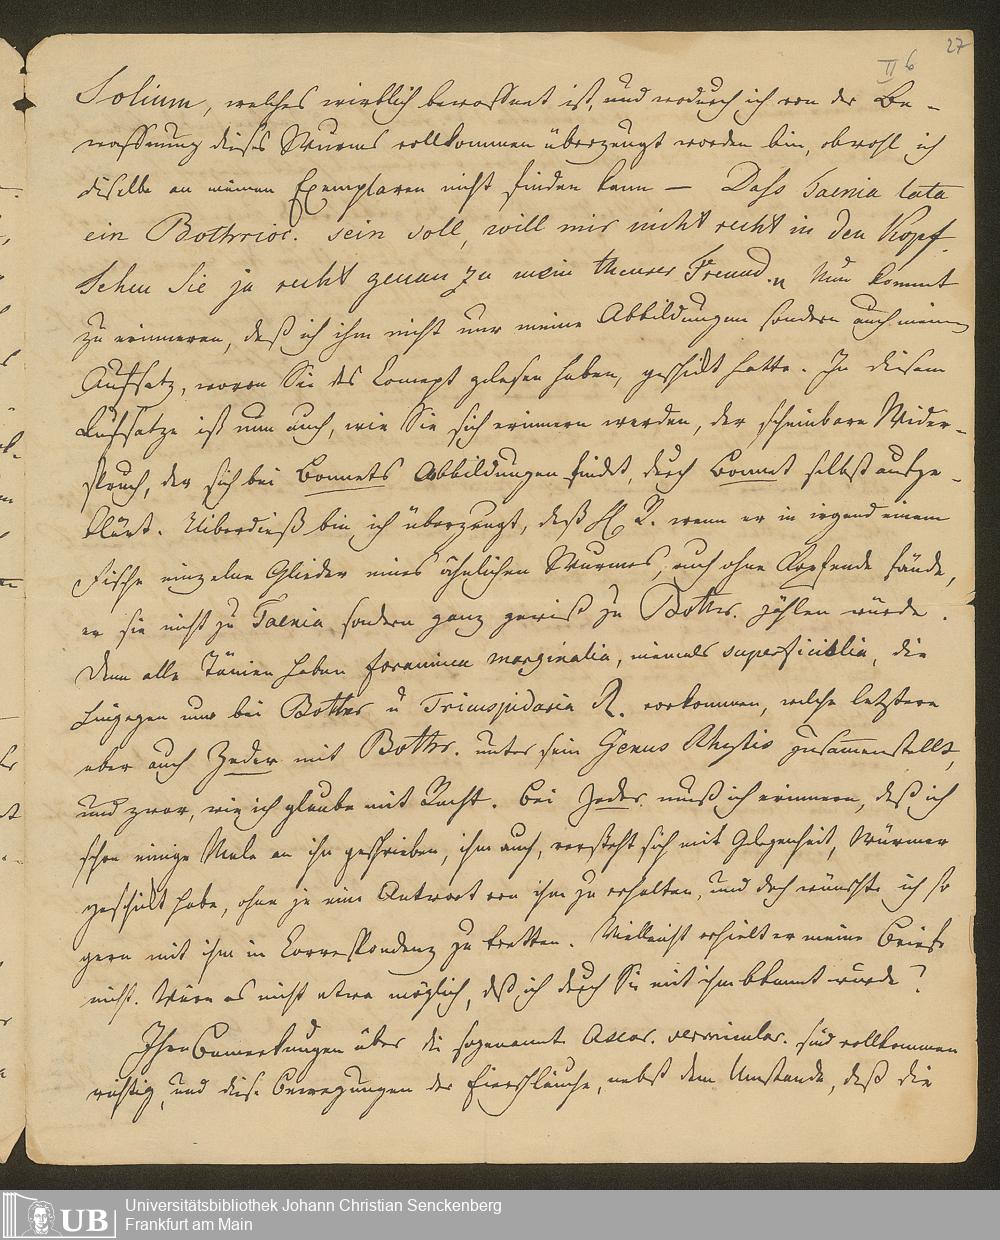 27
II 6
Solium, welches wirklich bewaffnet ist, und wodurch ich von der Be-
waffnung dieses Wurms vollkommen überzeugt worden bin, obwohl ich
dieselbe an meinen Exemplaren nicht finden kann — Dass Taenia lata
ein Bothrioc. sein soll, will mir nicht recht in den Kopf.
Sehen Sie ja recht genau zu mein theurer Freund. Nun kommt
zu erinneren, daß ich ihm nicht nur meine Abbildungen sondern auch meinen
Aufsatz, wovon Sie das Concept gelesen haben, geschickt hatte. In diesem
Aufsatze ist nun auch, wie Sie sich erinnern werden, der scheinbare Wider-
spruch, der sich bei Bonnets Abbildungen findet, durch Bonnet selbst aufge-
klärt. Uiberdieß bin ich überzeugt, daß H R. wenn er in irgend einem
Fische einzelne Glieder eines ähnlichen Wurmes, auch ohne Kopfende fände,
er sie nicht zu Taenia sondern ganz gewiß zu Bothr. zählen würde.
Denn alle Tänien haben foramina marginalia, niemals superficialia, die
hingegen nur bei Bothr u Tricuspidaria R. vorkommen, welche letztere
aber auch Zeder mit Bothr. unter sein Genus Rhytis zusammenstellt,
und zwar, wie ich glaube mit Recht. Bei Zeder muß ich erinnern, daß ich
schon einige Male an ihn geschrieben, ihm auch, versteht sich mit Gelegenheit, Würmer
geschickt habe, ohne je eine Antwort von ihm zu erhalten, und doch wünschte ich so
gern mit ihm in Correspondenz zu tretten. Vielleicht erhielt er meine Briefe
nicht. Wäre es nicht etwa möglich, daß ich durch Sie mit ihm bekannt würde?
Ihre Bemerkungen über die sogenannte Ascar. vermicular. sind vollkommen
richtig, und diese Bewegungen der Eierschläuche, nebst dem Umstande, daß die
UB
Universitätsbibliothek Johann Christian Senckenberg
Frankfurt am Main